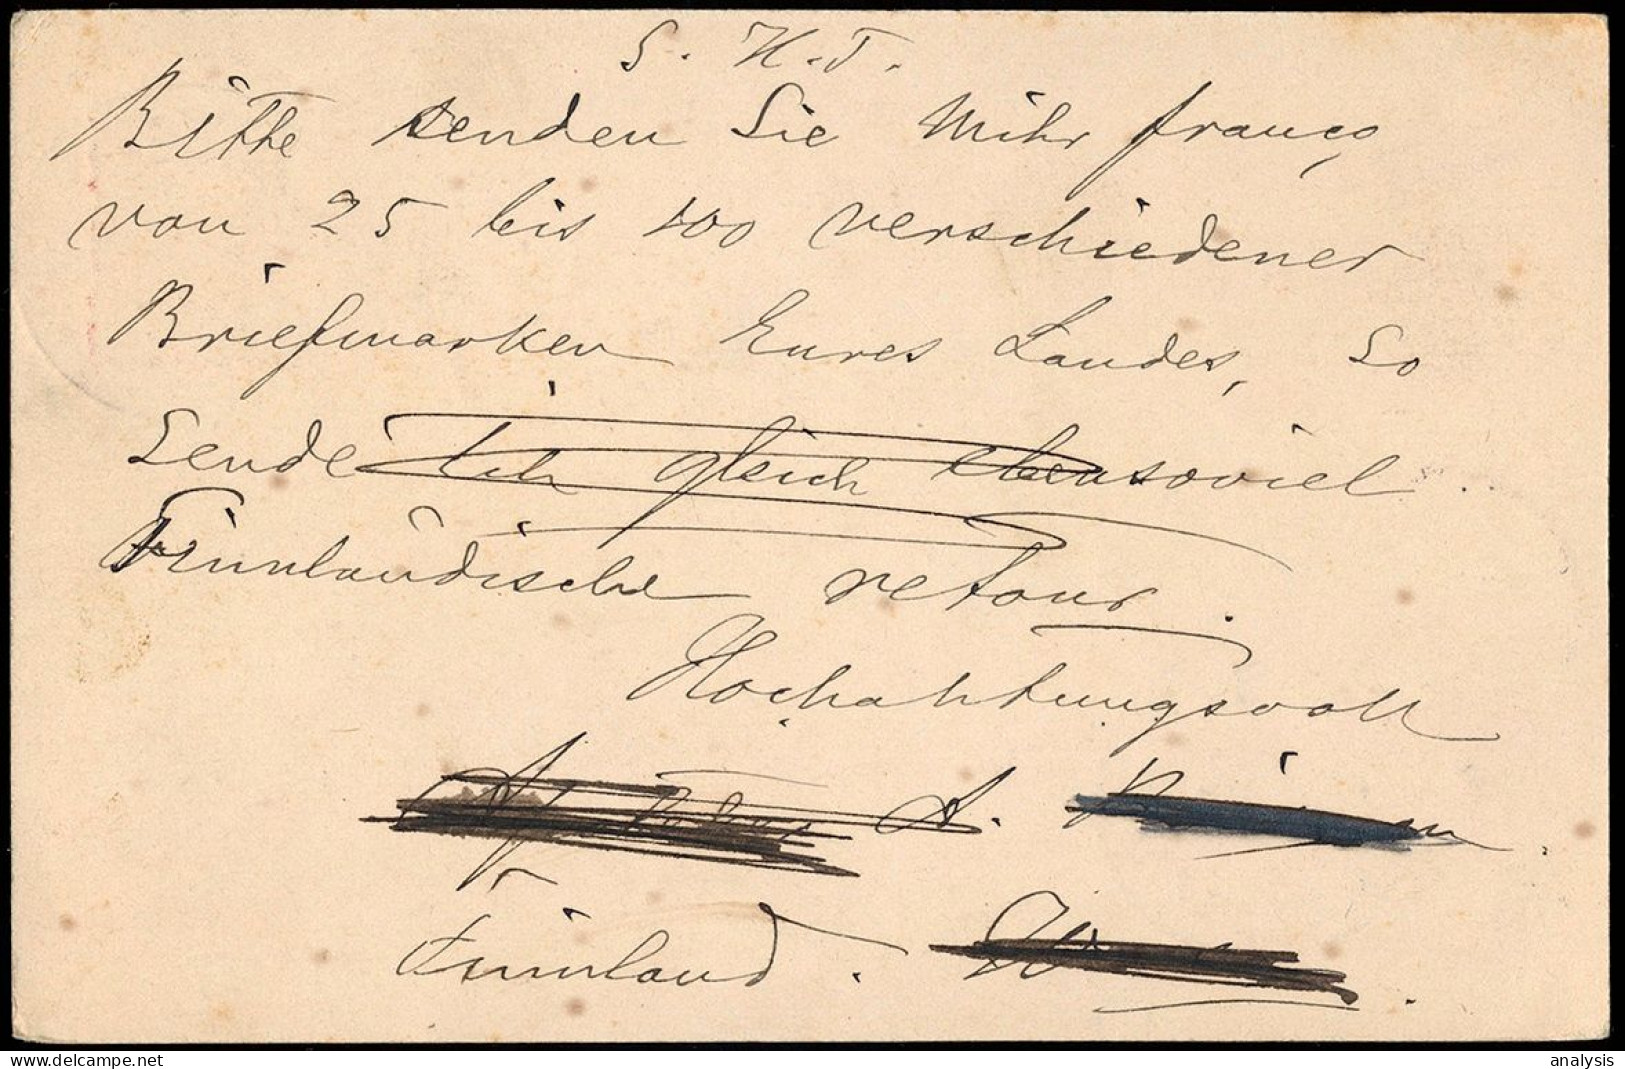 S. H. T.
Bitte senden Sie Mihr franco,
von 25 bis 100 verschiedener
Briefmarken Eures Landes, so
sende Ich gleich ebensoviel
Finnländische retour.
Hochahtungsvoll
A.
Finnland.
delcampe.net
analysis